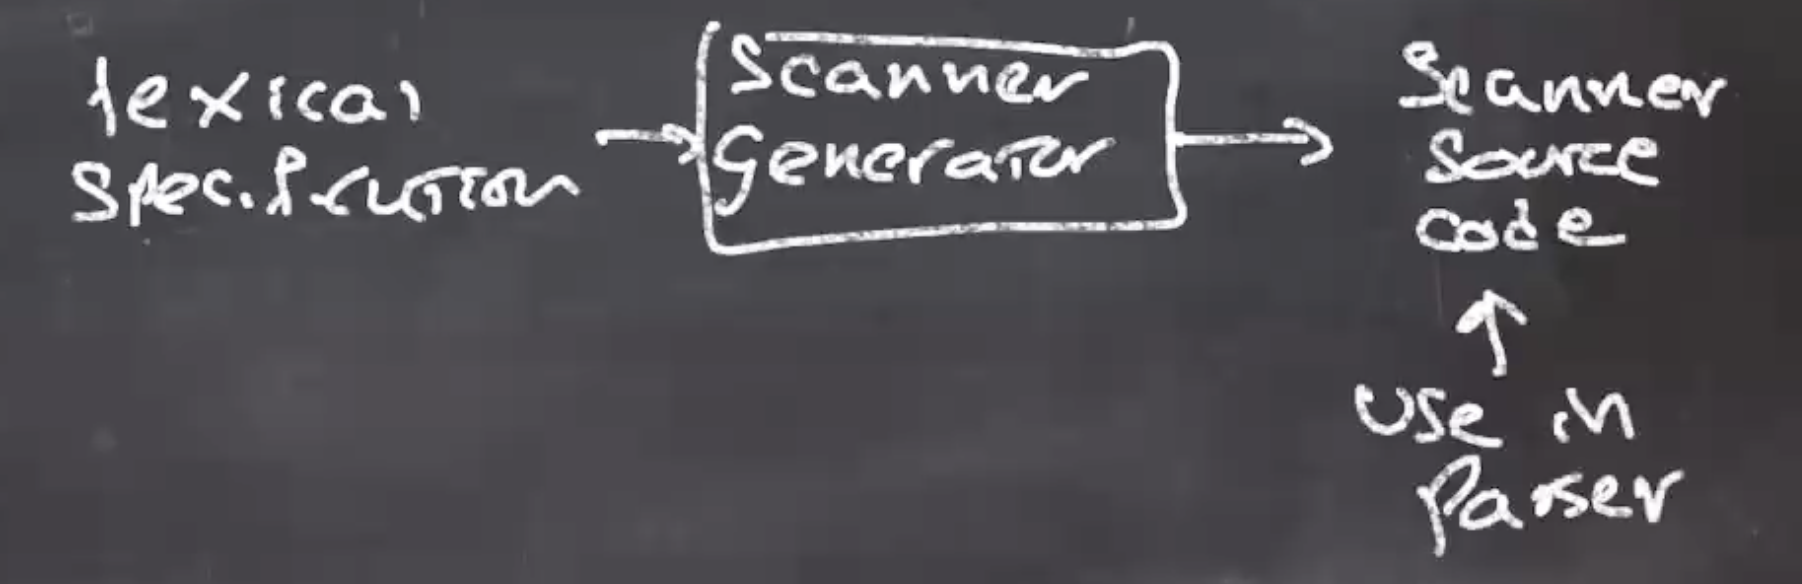 lexical
specification
Scanner
Generator
Scanner
Source
code
use in
Parser